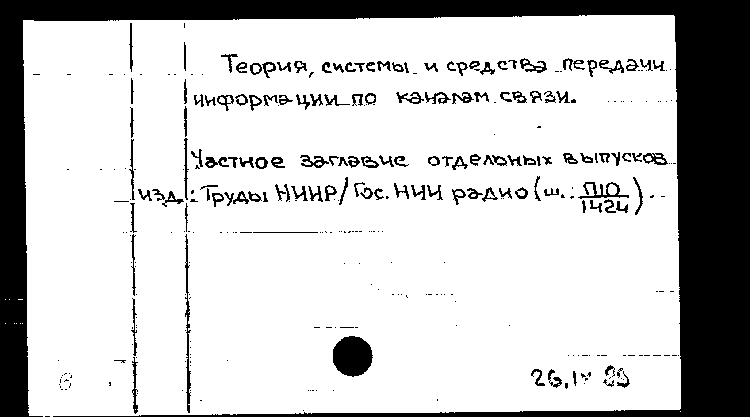 Теория, системы и средства передачи
информации по каналам связи.
Частное заглавие отдельных выпусков
изд.: Труды НИИР/Гос. НИИ радио (ш. П10/1424).
6
26.IV 89